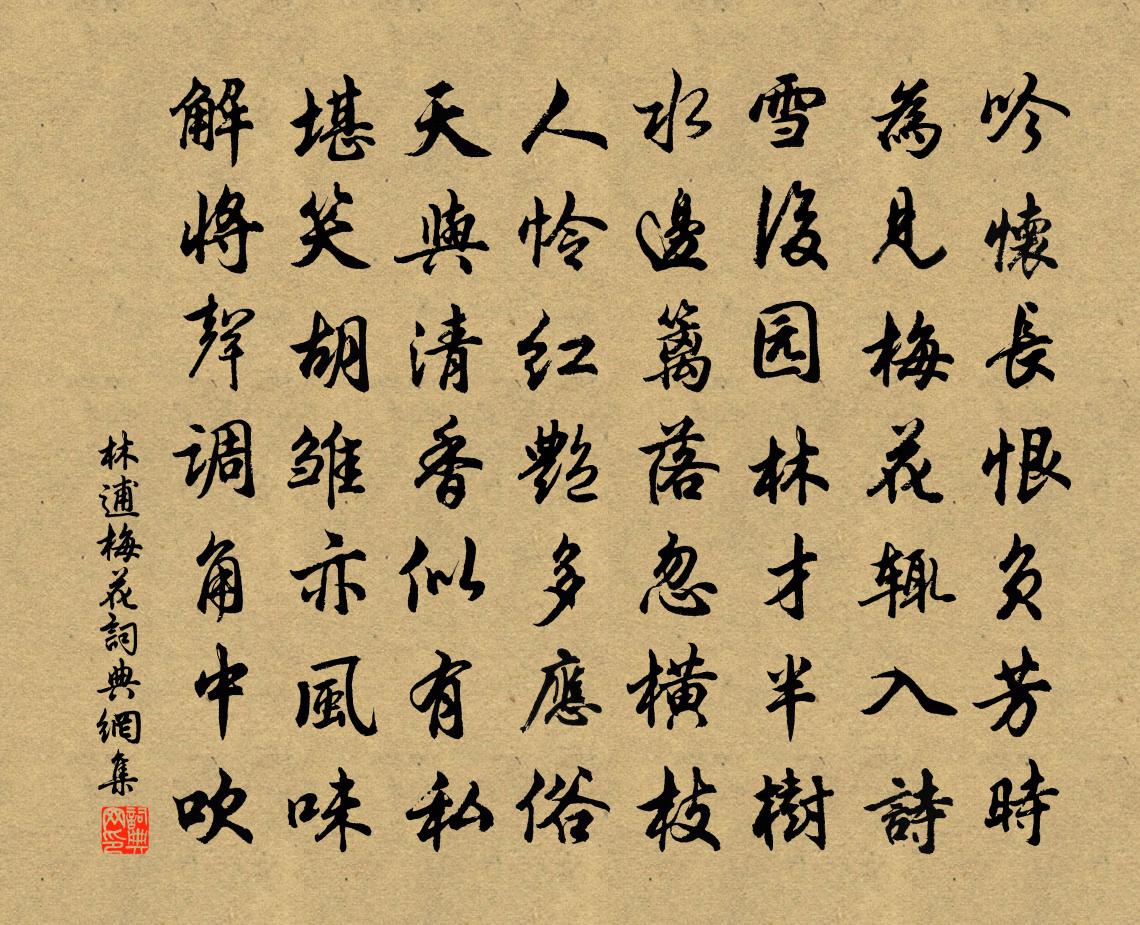 吟懷長恨负芳時
為見梅花辄入詩
雪後园林才半樹
水邊籬落忽横枝
人怜红艷多應俗
天與清香似有私
堪笑胡雏亦風味
解将聲调角中吹
林逋梅花詞典網集
詞典网印